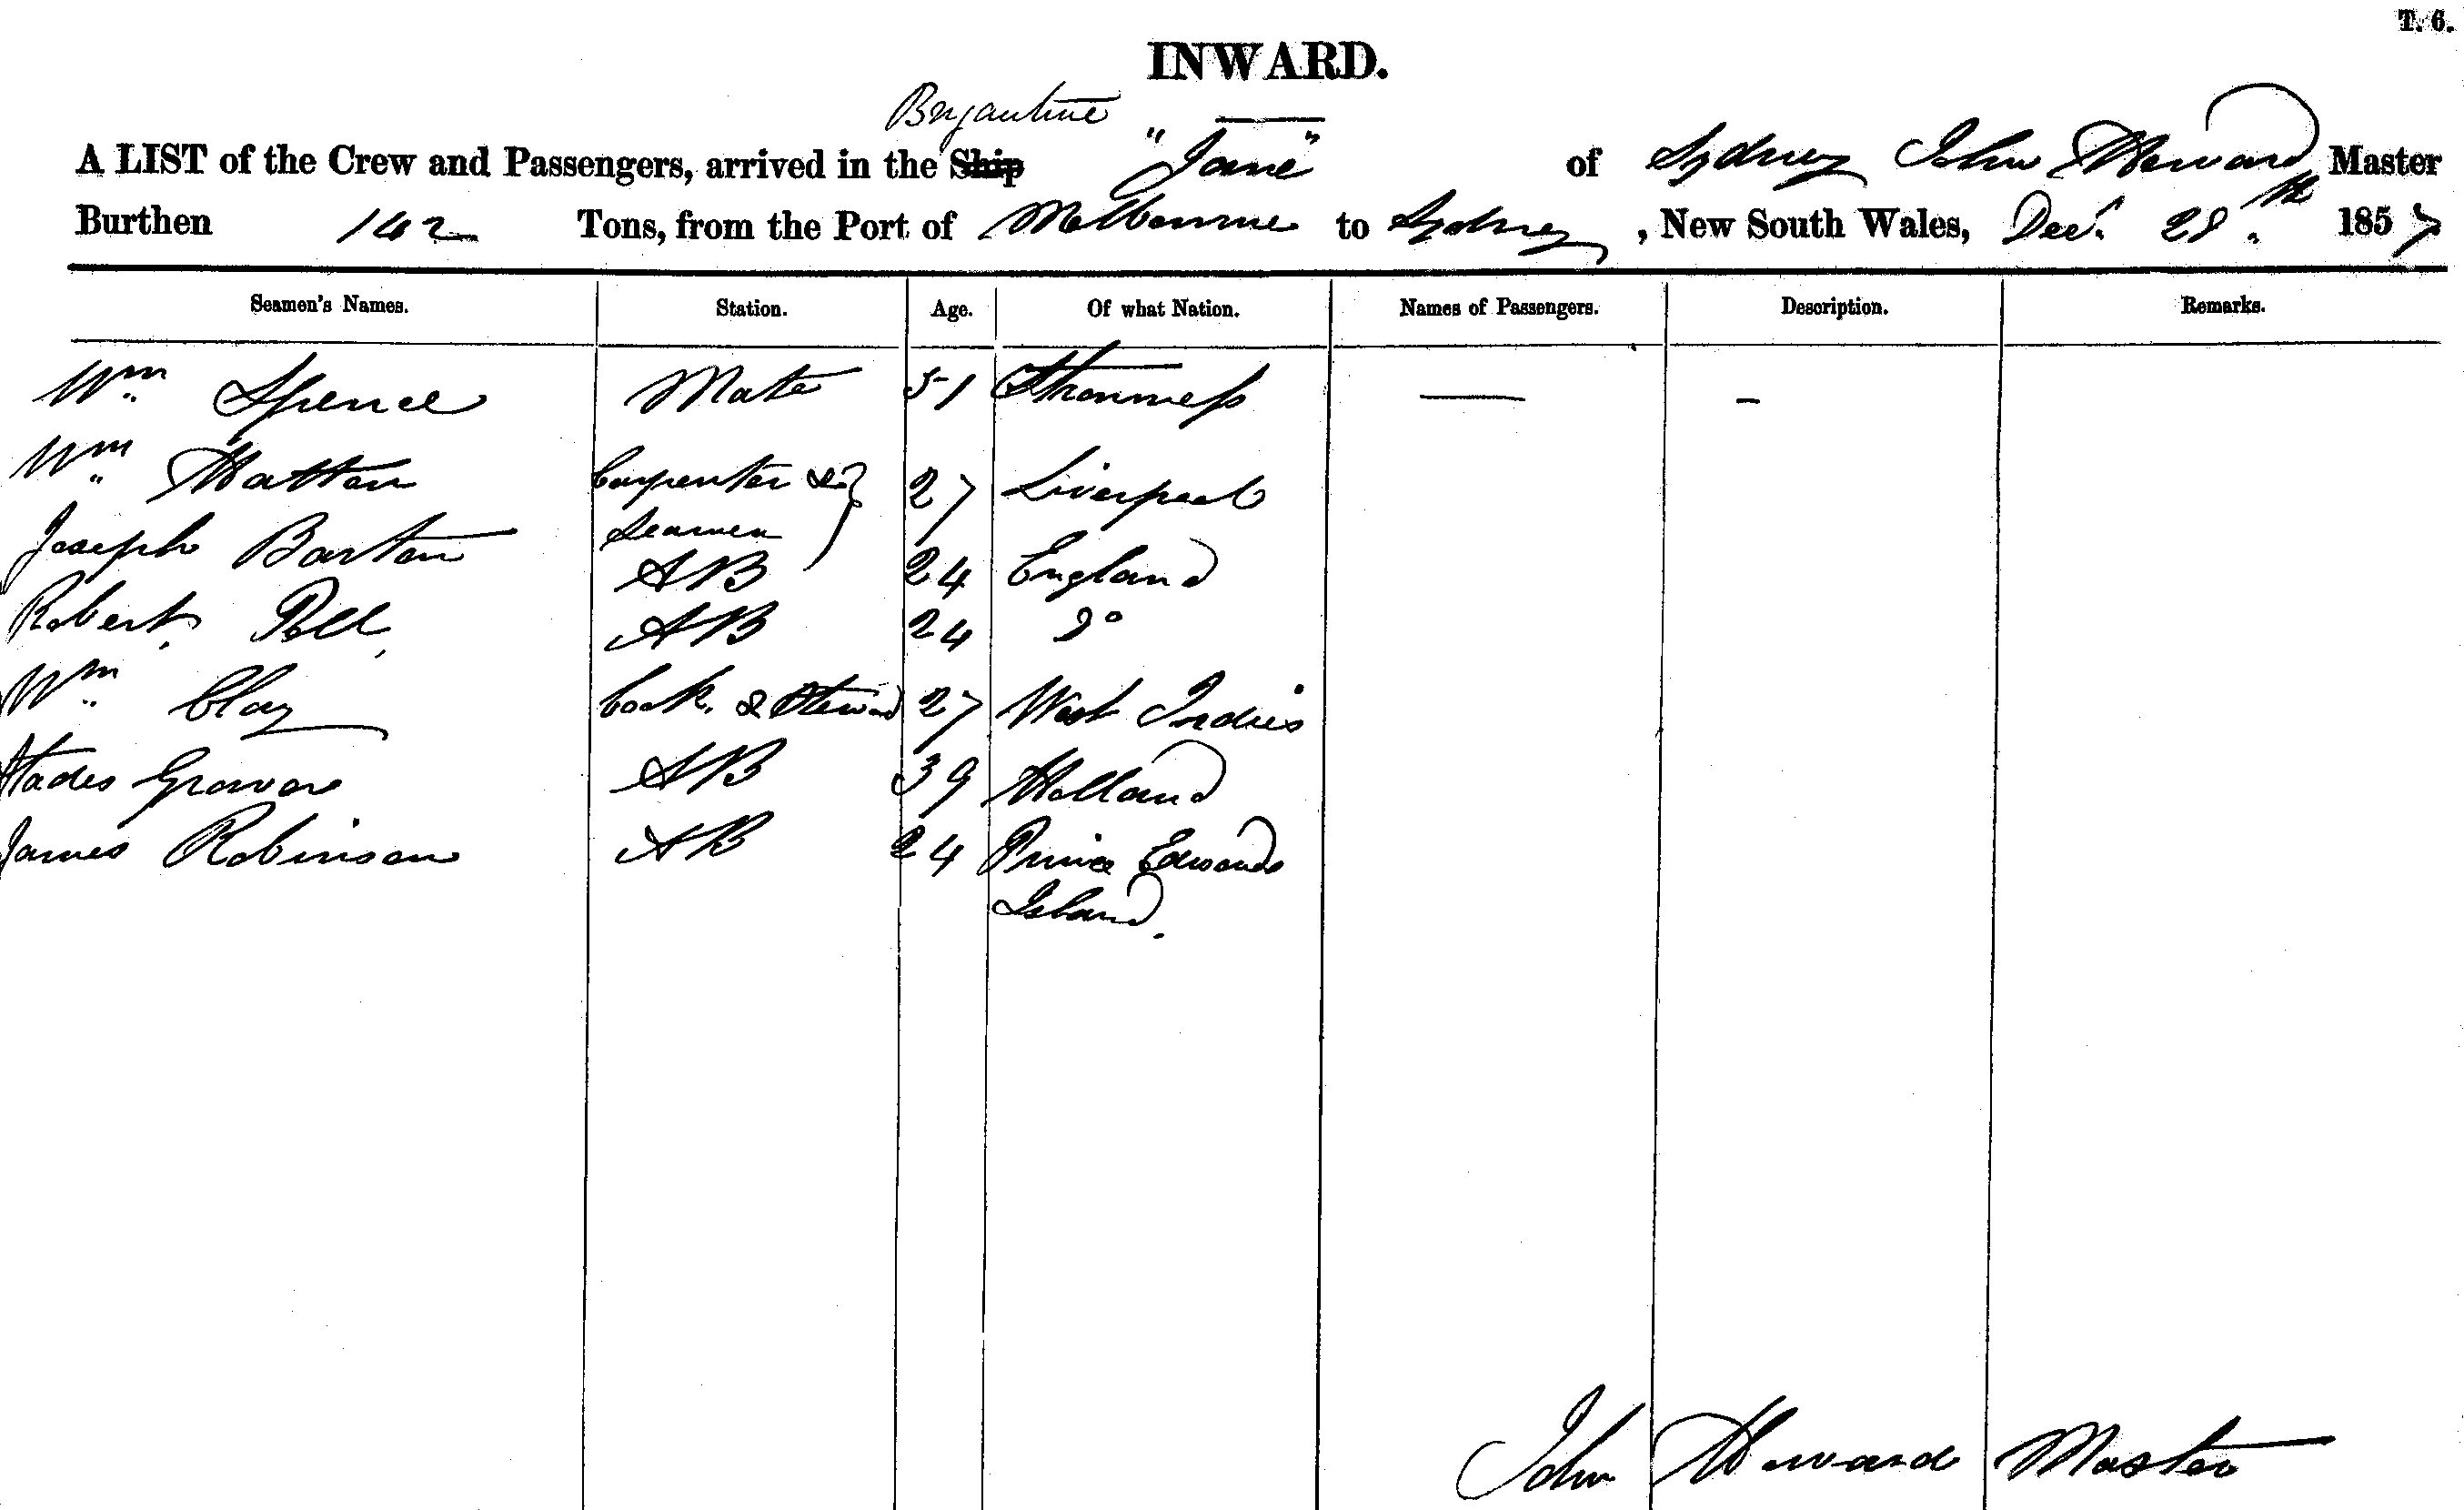 T. 6.
INWARD.
Brigantine
A LIST of the Crew and Passengers, arrived in the Ship "Jane" of Sydney John Howard Master
Burthen 142 Tons, from the Port of Melbourne to Sydney, New South Wales, Decr. 28th. 1857
Seamen's Names. Station. Age. Of what Nation. Names of Passengers. Description. Remarks.
Wm Spence Mate 51 Stromness — –
Wm Hatton Carpenter & 27 Liverpool
Seamen
Joseph Barton AB 24 England
Robert AB 24 Do
Wm Clay Cook & Steward 27 West Indies
AB 39 Holland
James Robinson AB 24 Prince Edwards
Island.
John Howard Master